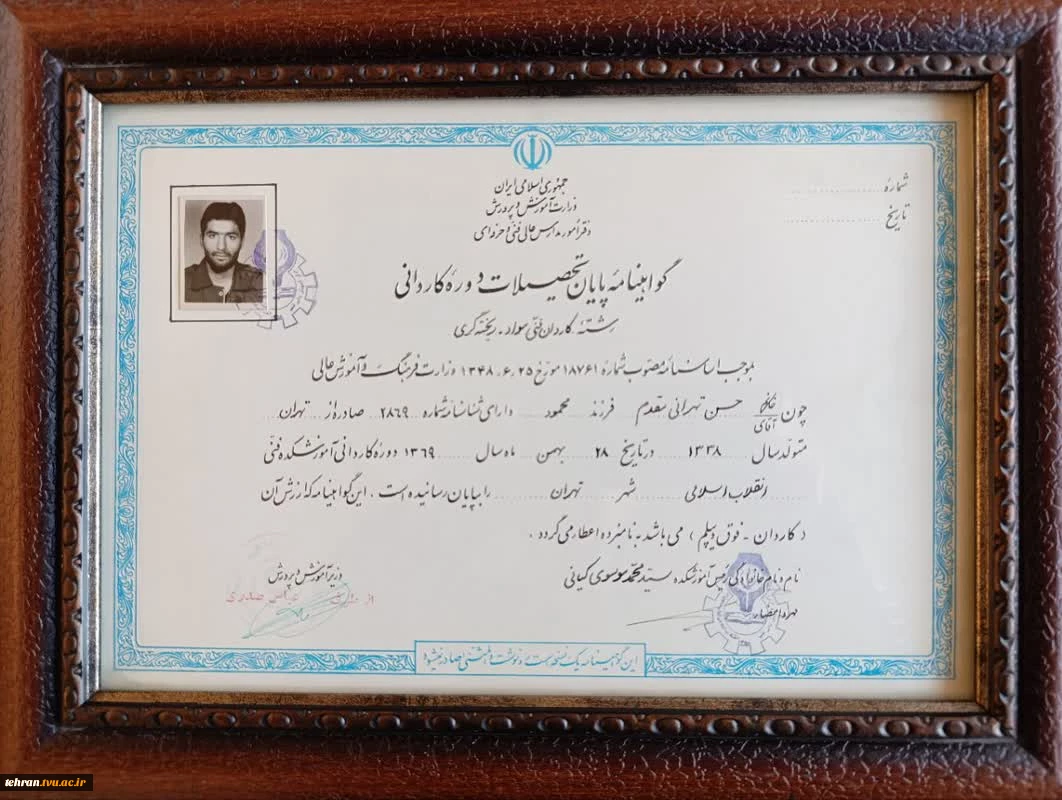 جمهوری اسلامی ایران
وزارت آموزش و پرورش
دفتر امور مدارس عالی فنی و حرفه‌ای
شمارهٔ
تاریخ
گواهینامه پایان تحصیلات دورهٔ کاردانی
رشتهٔ کاردان فنی مواد - ریخته گری
بموجب اساسنامه مصوب شمارهٔ ۱۸۷۶۱ مورخ ۱۳۴۸.۶.۲۵ وزارت فرهنگ و آموزش عالی
چون خانم آقای حسن تهرانی مقدم فرزند محمود دارای شناسنامه شماره ۲۸۶۹ صادره از تهران
متولد سال ۱۳۳۸ در تاریخ ۲۸ بهمن ماه سال ۱۳۶۹ دورهٔ کاردانی آموزشکده فنی
انقلاب اسلامی شهر تهران را بپایان رسانیده است . این گواهینامه که ارزش آن
( کاردان - فوق دیپلم ) می باشد به نامبرده اعطا می گردد .
نام و نام خانوادگی رئیس آموزشکده سید محمد موسوی کیانی
مهر و امضاء
وزیر آموزش و پرورش
از طرف عباس صدری
این گواهینامه یک نسخه است و رونوشت یا المثنی صادر نمیشود
tehran.tvu.ac.ir